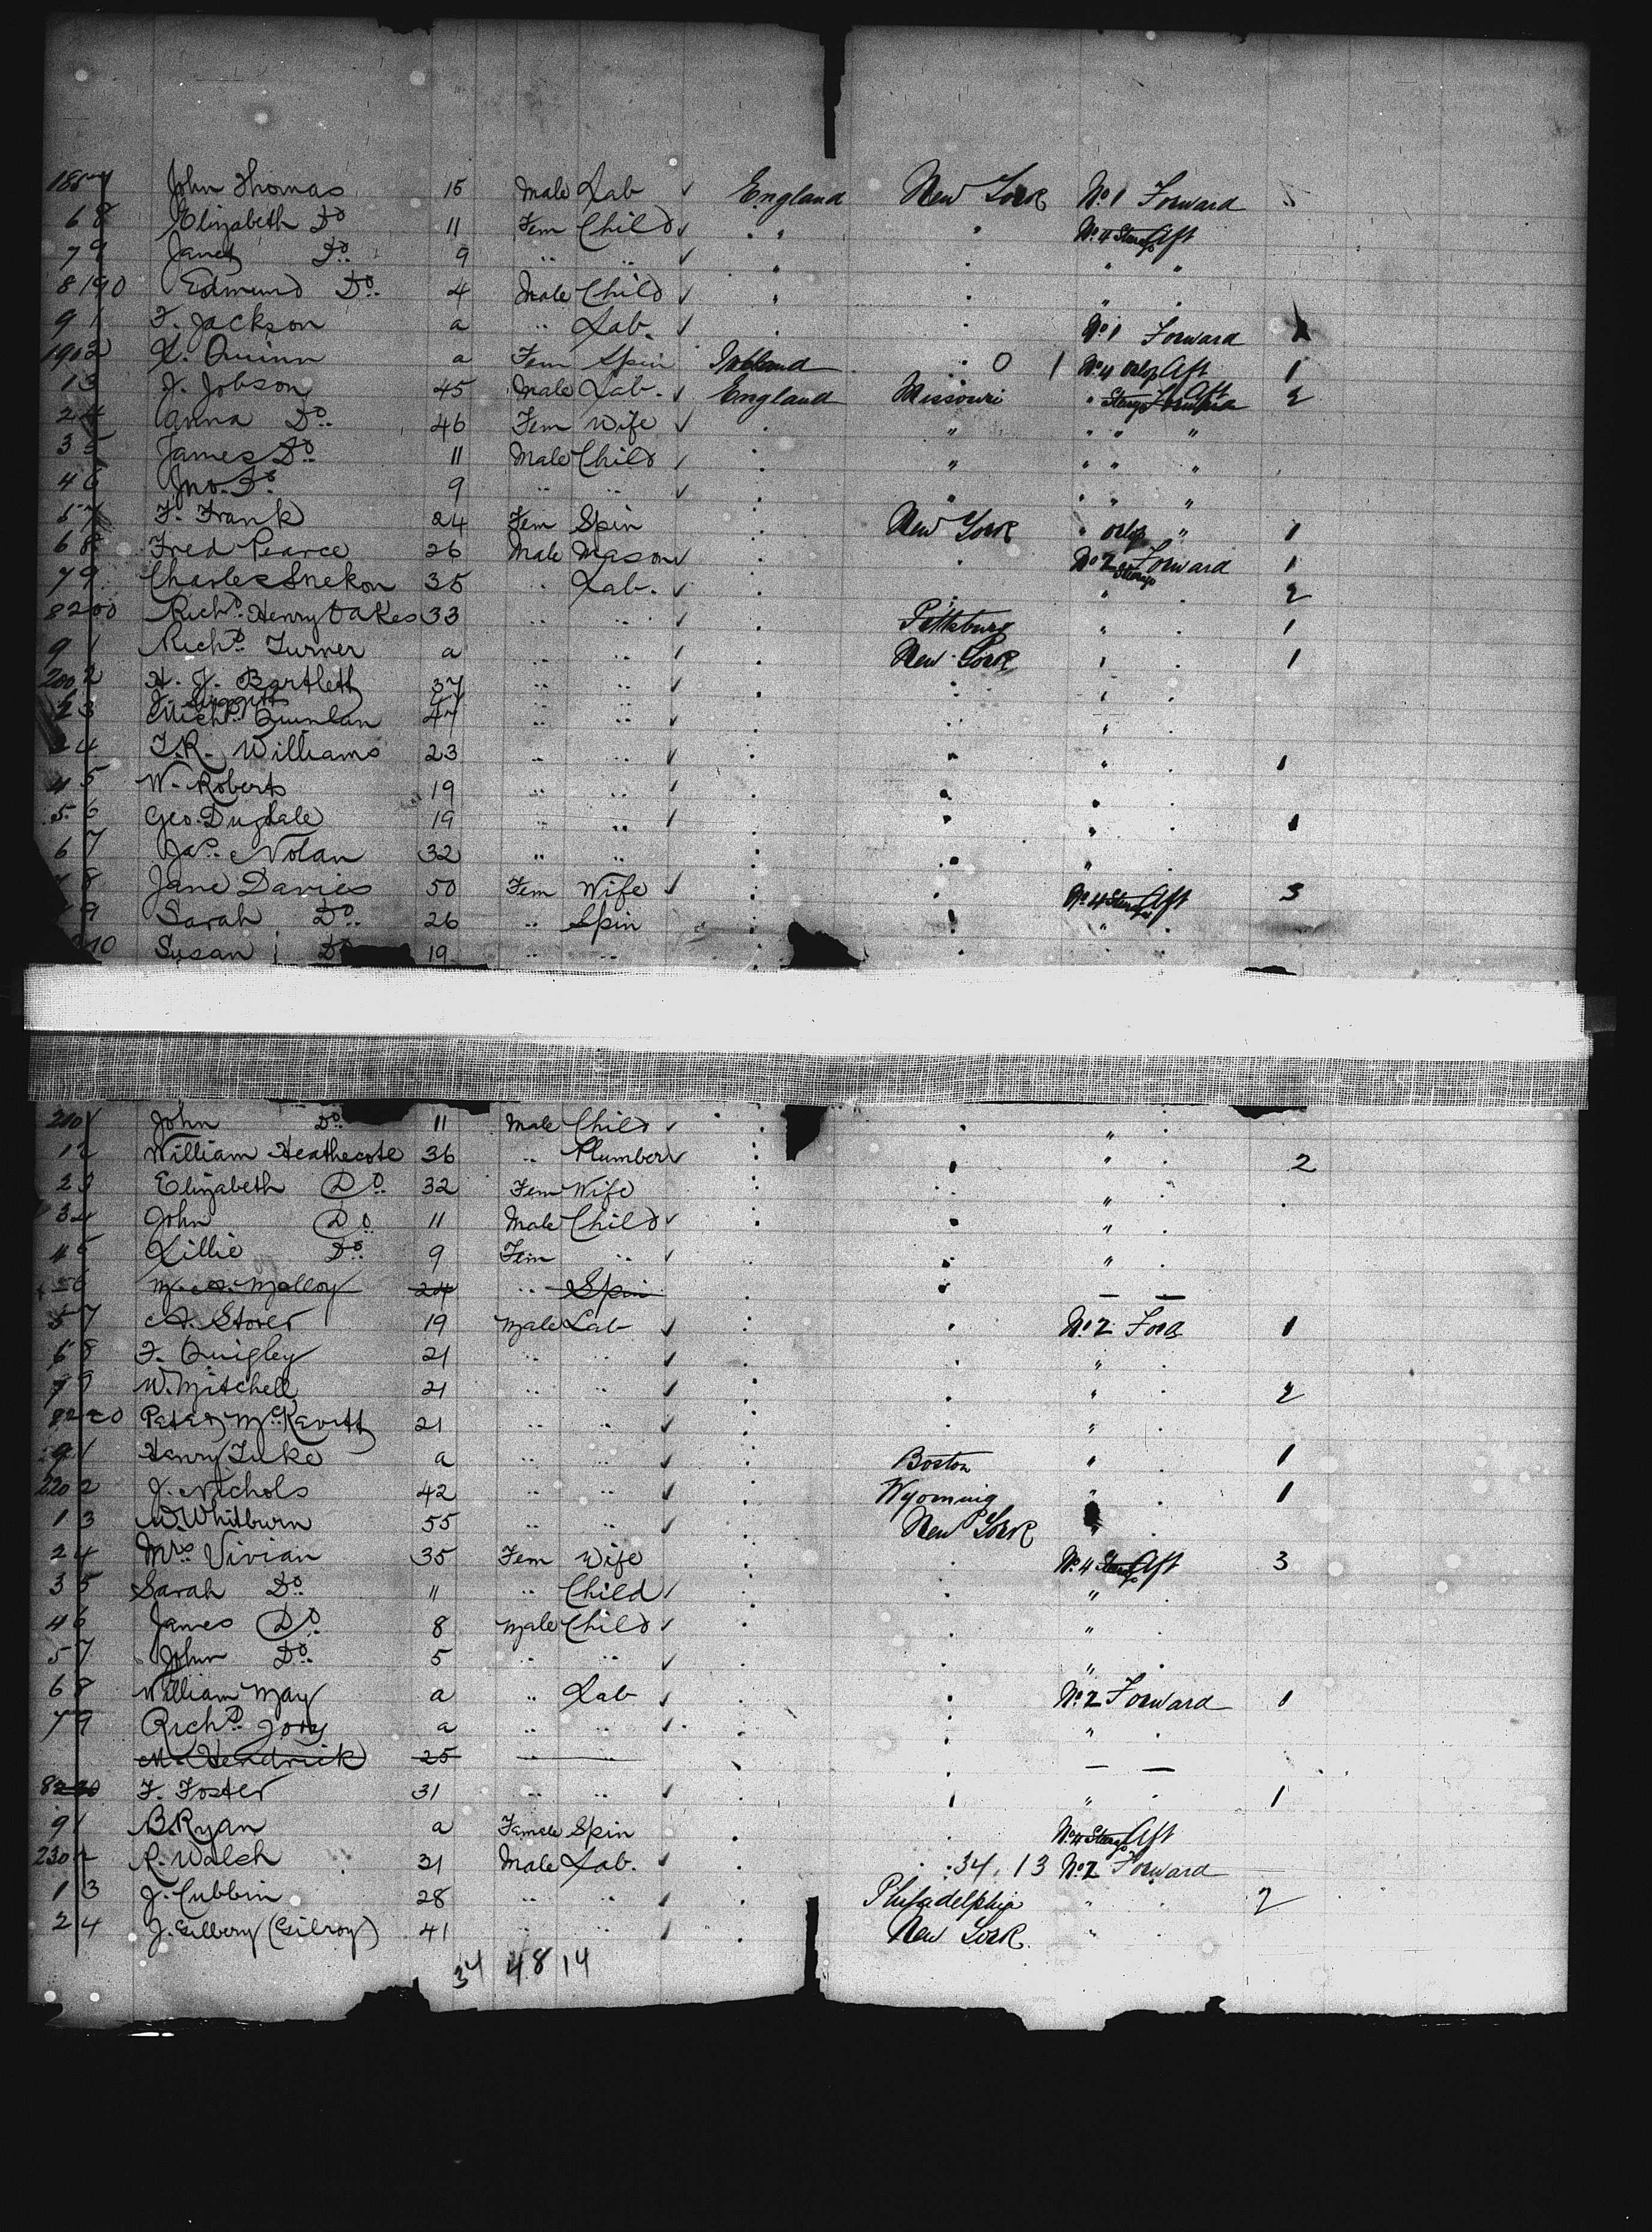 1857 John Thomas 15 Male Lab ✓ England New York No. 1 Forward
6 8 Elizabeth Do 11 Fem Child ✓ " " No. 4 Steerage Aft
7 9 Janet Do 9 " " ✓ " " " "
8 190 Edmund Do 4 Male Child ✓ " " " "
9 1 F. Jackson a " Lab. ✓ " " No. 1 Forward 1
190 2 L. Quinn a Fem Spin Ireland " 0 1 No. 4 Orlop Aft 1
1 3 J. Jobson 45 Male Lab. ✓ England Missouri " Steerage Aft 2
2 4 Anna Do 46 Fem Wife ✓ " " " " "
3 5 James Do 11 Male Child ✓ " " " " "
4 6 Jno. Do 9 " " ✓ " " " " "
5 7 F. Frank 24 Fem Spin " New York " Orlop " 1
6 8 Fred Pearce 26 Male Mason ✓ " " No. 2 Steerage Forward 1
7 9 Charles Snekon 35 " Lab. ✓ " " " " 2
8 200 Richd. Henry Oakes 33 " " ✓ " Pittsburg " " 1
9 1 Richd. Turner a " " ✓ " New York " " 1
200 2 H. J. Bartlett 37 " " ✓ " " " "
2 3 Michl. Quinlan 47 " " ✓ " " " "
2 4 T. R. Williams 23 " " ✓ " " " " 1
4 5 W. Roberts 19 " " ✓ " " " "
5 6 Geo. Dugdale 19 " " ✓ " " " " 1
6 7 Jas. Nolan 32 " " " " " "
8 Jane Davies 50 Fem Wife ✓ " " No. 4 Steerage Aft 3
9 Sarah Do 26 " Spin " " " "
10 Susan Do 19 " " " " " "
210 1 John Do 11 Male Child ✓ " " " "
1 2 William Heathecote 36 " Plumber ✓ " " " " 2
2 3 Elizabeth Do 32 Fem Wife " " " "
3 4 John Do 11 Male Child ✓ " " " "
4 5 Lillie Do 9 Fem " ✓ " " " "
5 6 M. A. Molloy 24 " Spin " " — —
5 7 A. Storer 19 Male Lab ✓ " " No. 2 Ford 1
6 8 F. Quigley 21 " " ✓ " " " "
7 9 W. Mitchell 21 " " ✓ " " " " 2
8 220 Peter McKevitt 21 " " ✓ " " " "
9 1 Henry Luke a " " ✓ " Boston " " 1
220 2 J. Nichols 42 " " ✓ " Wyoming " " 1
1 3 W. Whitburn 55 " " ✓ " New York " "
2 4 Mrs Vivian 35 Fem Wife " " No. 4 Steerage Aft 3
3 5 Sarah Do 11 " Child ✓ " " " "
4 6 James Do 8 Male Child ✓ " " " "
5 7 John Do 5 " " ✓ " " " "
6 8 William May a " Lab ✓ " " No. 2 Forward 1
7 9 Richd. Jory a " " ✓ " " " "
M. Hendrick 25 " " " " — —
8 230 F. Foster 31 " " ✓ " " " " 1
9 1 B. Ryan a Female Spin " " No. 4 Steerage Aft
230 2 R. Walsh 31 Male Lab. ✓ " " 34. 13 No. 2 Forward
1 3 J. Cubbin 28 " " ✓ " Philadelphia " " 2
2 4 J. Gilbery (Gilroy) 41 " " ✓ " New York " "
34 48 14